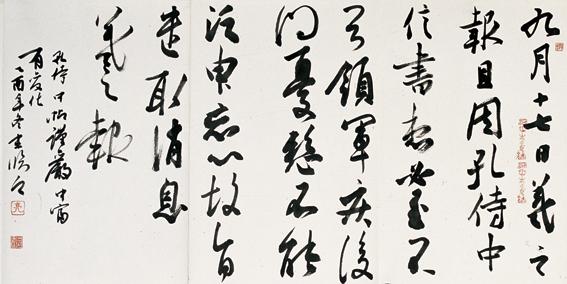 九月十七日羲之
報且因孔侍中
信書想必至不
知領軍疾後
問憂懸不能
須臾忘心故旨
遣取消息
羲之報
孔侍中帖謹嚴中寓
有變化
乙酉年冬